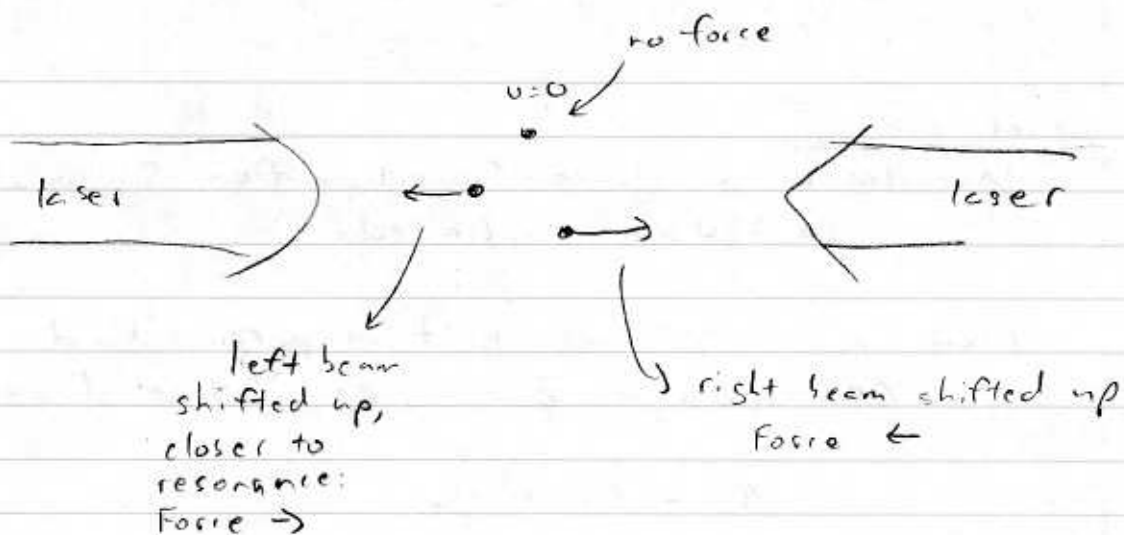 no force
v=0
laser
laser
left beam
shifted up,
closer to
resonance:
Force →
right beam shifted up
Force ←